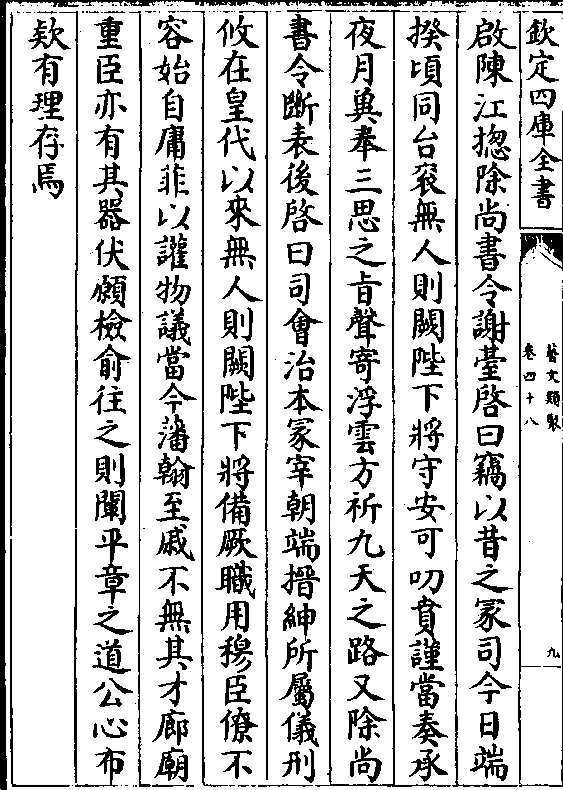 欽定四庫全書
藝文類聚
卷四十八
九
啟陳江揔除尚書令謝臺啓曰竊以昔之冢司今日端
揆頃同台袞無人則闕陛下將守安可叨賁謹當奏承
夜月輿奉三思之旨聲寄浮雲方祈九天之路又除尚
書令斷表後啓曰司會治本冢宰朝端搢紳所屬儀刑
攸在皇代以來無人則闕陛下將備厥職用穆臣僚不
容始自庸菲以讙物議當今藩翰至戚不無其才廊廟
重臣亦有其器伏願檢俞往之則闡平章之道公心布
欵有理存焉